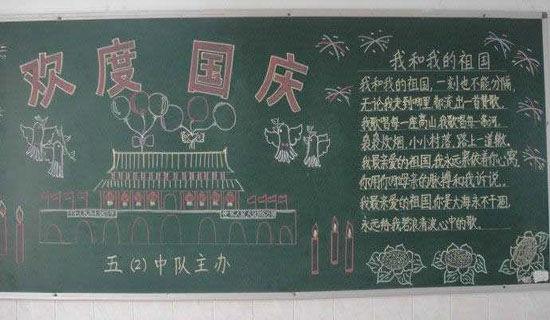 欢度国庆
我和我的祖国
我和我的祖国,一刻也不能分隔,
无论我走到哪里都流出一首赞歌。
我歌唱每一座高山,我歌唱每一条河。
袅袅炊烟,小小村落,路上一道辙。
我最亲爱的祖国,我永远紧依着你心窝,
你用你那母亲的脉搏和我诉说。
我最亲爱的祖国,你是大海永不干涸,
永远给我碧浪清波心中的歌。
五(2)中队主办